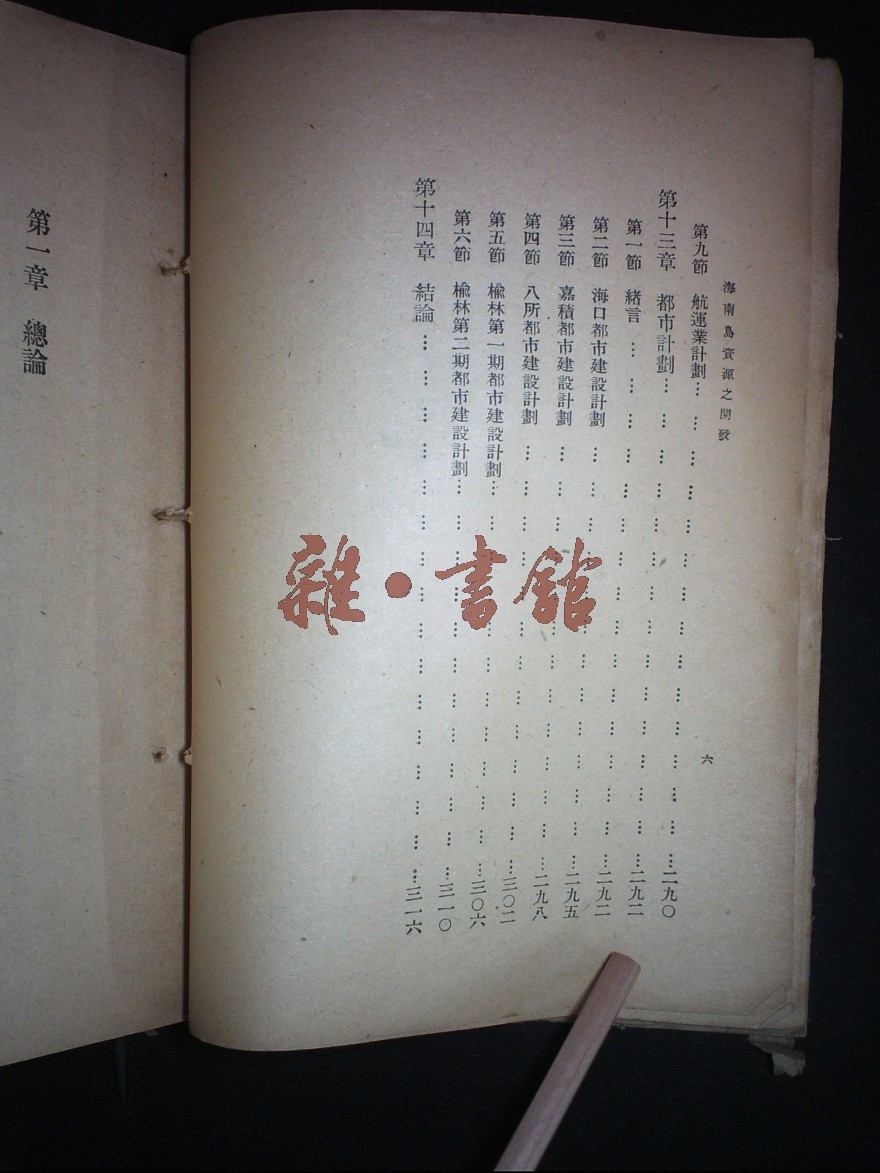 海南島資源之開發
六
第九節 航運業計劃……二九〇
第十三章 都市計劃……二九二
第一節 緒言……二九二
第二節 海口都市建設計劃……二九五
第三節 嘉積都市建設計劃……二九八
第四節 八所都市建設計劃……三〇二
第五節 榆林第一期都市建設計劃……三〇六
第六節 榆林第二期都市建設計劃……三一〇
第十四章 結論……三一六
第一章 總論
雜·書館